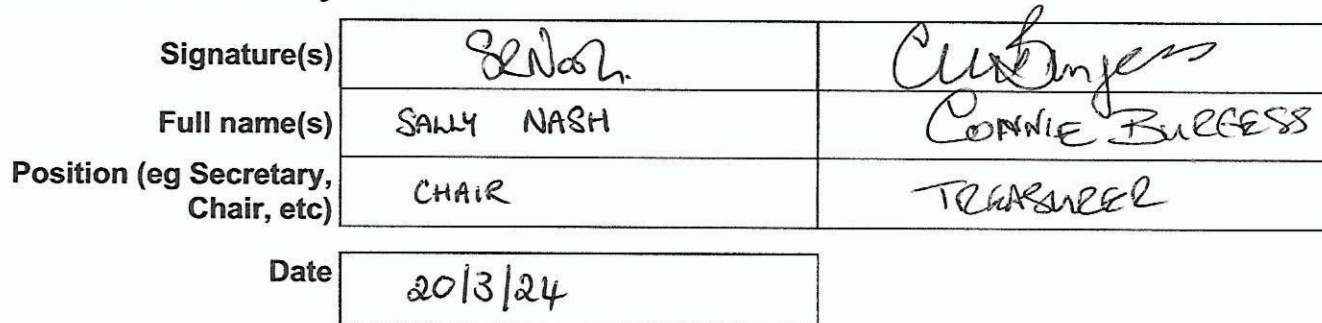 Signature(s) SRNash. CM Burgess
Full name(s) SALLY NASH CONNIE BURGESS
Position (eg Secretary,
Chair, etc) CHAIR TREASURER
Date 20/3/24